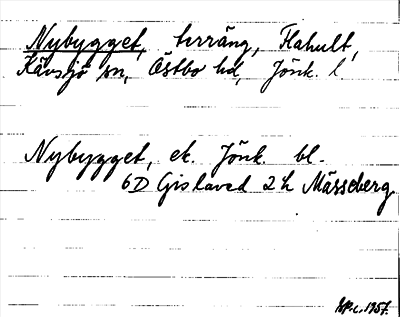 Nybygget, terräng, Flahult,
Kävsjö sn, Östbo hd, Jönk. l
Nybygget, ek. Jönk. bl.
6D Gislaved 2 h Mässeberg
1957.